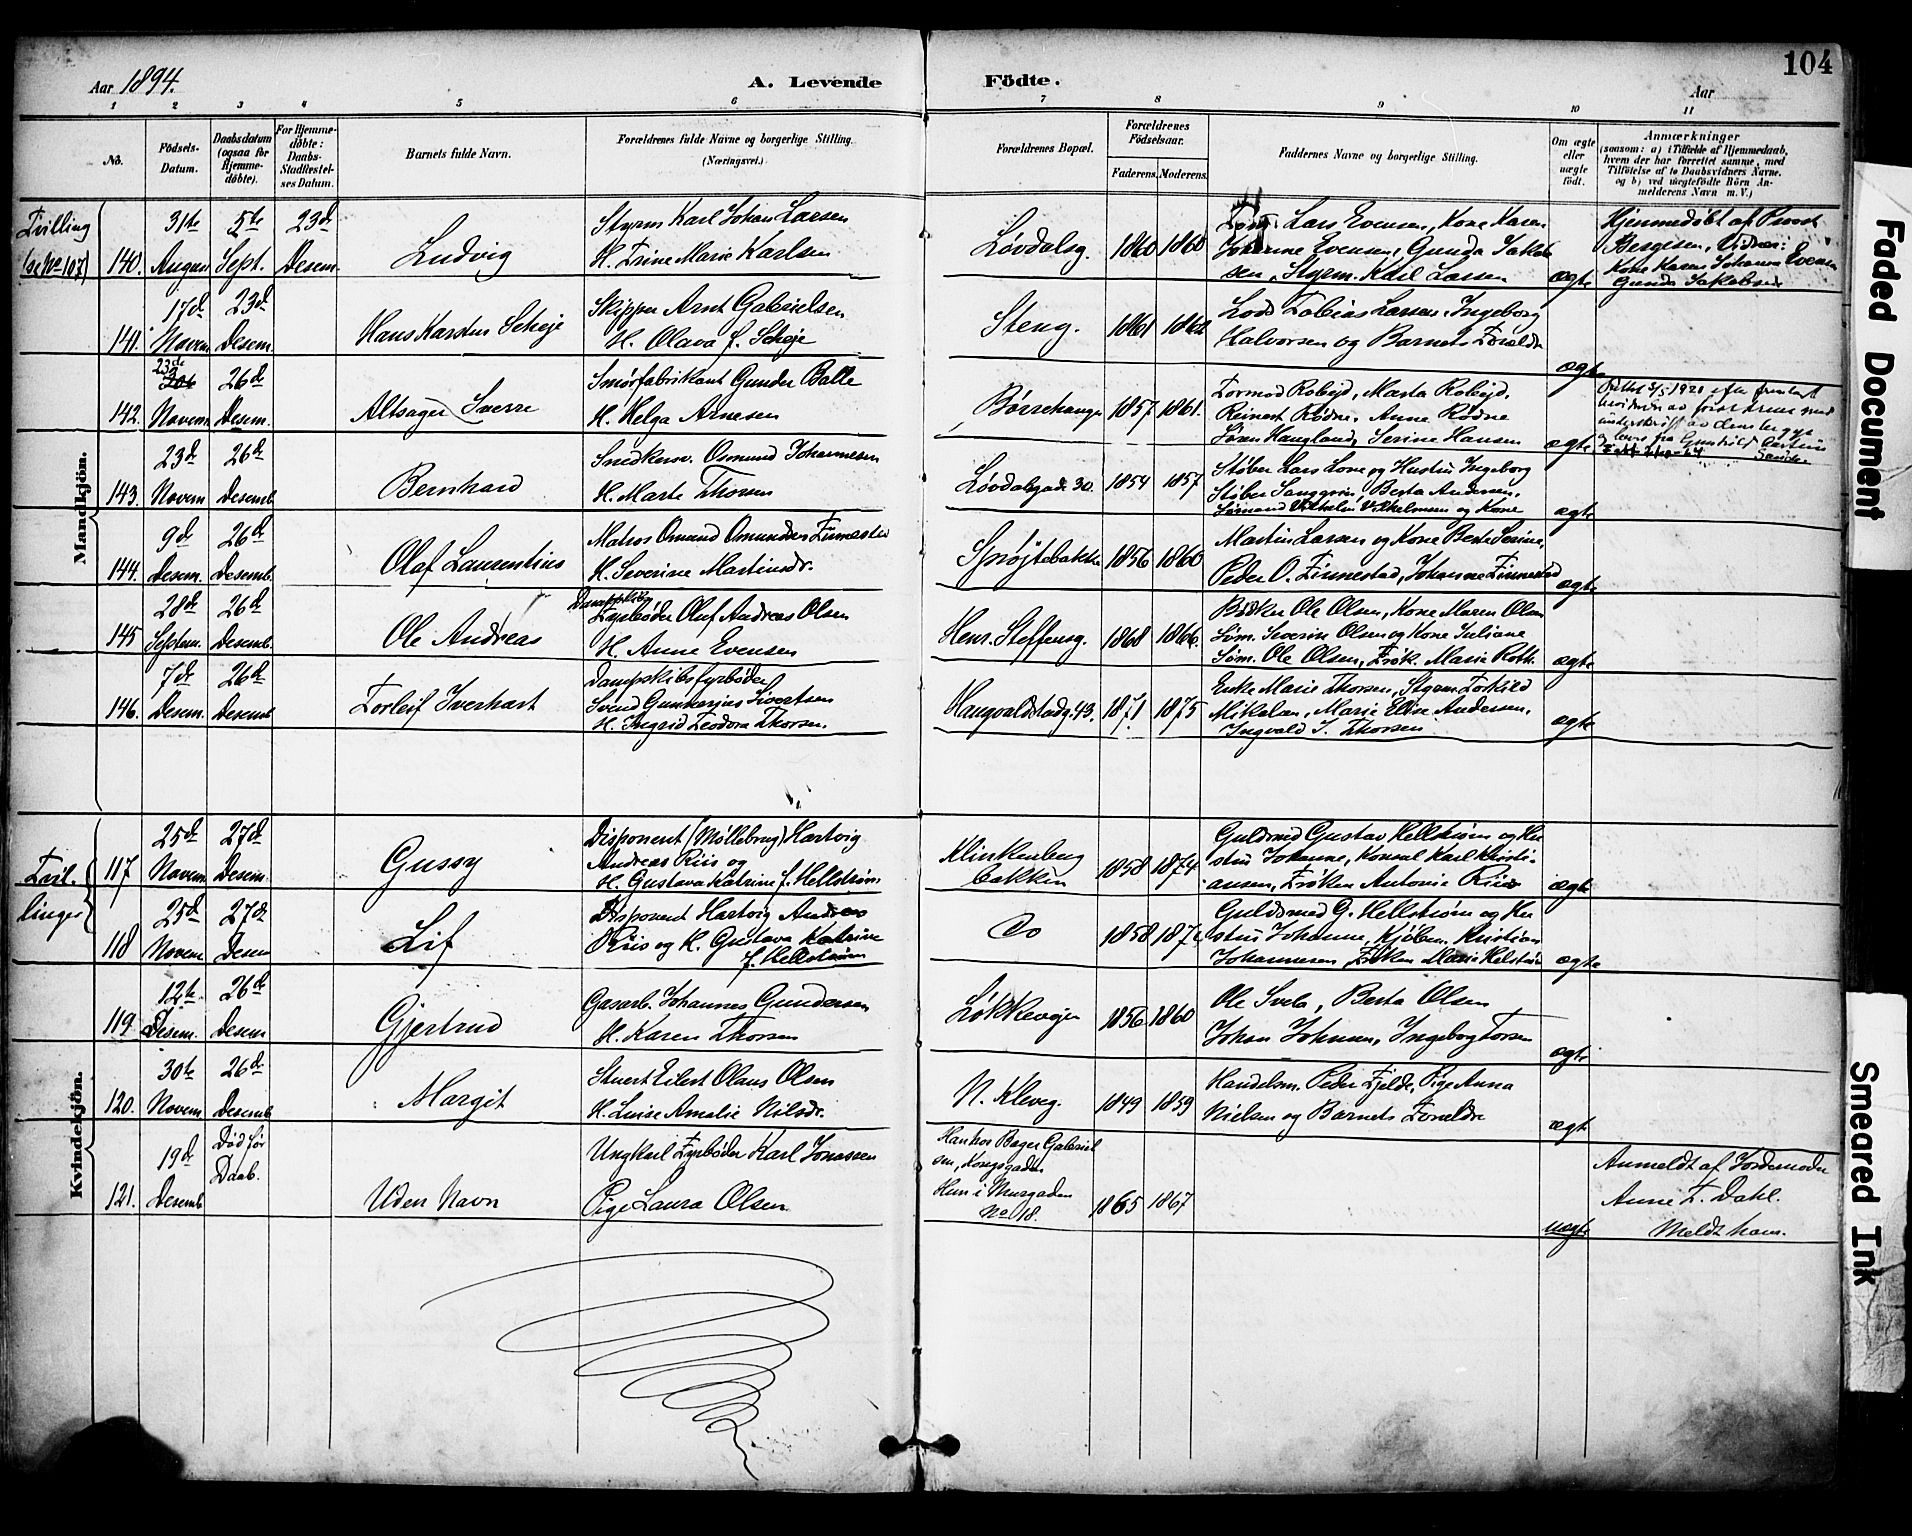 104
Aar 1894.
A. Levende Fødte.
Aar
1 2 3 4 5 6 7 8 9 10 11
No.
Födsels-Datum.
Daabsdatum (ogsaa for Hjemme-döbte).
For Hjemme-döbte: Daabs-Stadfæstelses Datum.
Barnets fulde Navn.
Forældrenes fulde Navne og borgerlige Stilling.
(Næringsvei.)
Forældrenes Bopæl.
Forældrenes Födselsaar.
Faderens. Moderens.
Faddernes Navne og borgerlige Stilling.
Om ægte eller uægte födt.
Anmærkninger
(saasom: a) i Tilfælde af Hjemmedaab,
hvem der har forrettet samme, med
Tilföielse af to Daabsvidners Navne,
og b) ved uægtefödte Börn An-
melderens Navn m. V.)
Mandkjön.
Tvilling
(se No 107)
140.
31te
August
5te
Sept.
23d
Desem.
Ludvig
Styrm Karl Johan Larsen
H. Trine Marie Karlsen
Løvdalsg.
1860 1860
Lars Evensen, Kone Karen
Johanne Evensen, Gunda Jakob-
sen, Styrm. Karl Larsen
ægte
Hjemmedøbt af Provst
Kone Karen Johanne Evensen
Gunda Jakobsen
141.
17d
Novem
23d
Desem.
Hans Karsten Scheje
Skipper Arnt Gabrielsen
H. Olava f. Scheje
Steng.
1861 1862
Lods Tobias Larsen, Ingeborg
Halvorsen og Barnets Forældre
ægte
142.
23de
Novem
26de
Desem.
Altsager Sverre
Smørfabrikant Gunder Balle
H. Helga Arnesen
1857 1861.
Tormod Robejd, Marta Robejd,
Reinert Rødne, Anne Rødne
Søren Haugland, Serine Hansen
ægte
143.
23d
Novem
26de
Desemb
Bernhard
Snedkersv. Osmund Johannesen
H. Marte Thorsen
Løvdalsgade 30.
1854 1857
Støber Lars Lone og Hustru Ingeborg
Berta Andersen,
Sømand Vilhelm Vilhelmsen og Kone
ægte
144.
9d
Desem.
26d
Desemb.
Olaf Laurentius
Matros Osmund Osmundsen Finnestad
H. Severine Martinsdr.
Sprøjtebakke
1856 1860
Martin Larsen og Kone Berte Serine,
Peder O. Finnestad, Johanne Finnestad
ægte
145
28de
Septem.
26d
Desemb.
Ole Andreas
Dampskibs
Fyrbøder Oluf Andreas Olsen
H. Anne Evensen
Henr. Steffensg.
1868 1866.
Bødker Ole Olsen, Kone Maren Olsen
Søm. Severin Olsen og Kone Juliane
Søm. Ole Olsen, Frøk. Marie Roth.
ægte
146.
7d
Desem.
26de
Desemb
Torleif Iverhart
Dampskibsfyrbøder
Svend Gunnarius Sivertsen
H. Ingrid Teodora Thorsen.
Haugvaldstadg. 43.
1871 1875
Enke Marie Thorsen, Styrm Torkild
Mikelsen, Marie Elise Andersen,
Ingvald T. Thorsen
ægte
Kvindekjön.
Tvil-
linger
117
25de
Novem
27de
Desem.
Gussy
Disponent (Møllebrug) Hartvig
Andreas Riis og
H. Gustava Katrine f. Hellstrøm
Klinkenberg
bakken
1858 1874
Guldsmed Gustav Hellstrøm og Hu-
stru Johanne, Konsul Karl Kristi-
ansen, Frøken Antonie Riis
ægte
118
25d
Novem
27de
Desem
Lif
Disponent Hartvig Andreas
Riis og H. Gustava Katrine
f. Hellstrøm
Do
1858 187
Guldsmed G. Hellstrøm og Hu-
stru Johanne, Kjøbm. Kristian
Johannesen Frøken Marie Helstrøm
ægte
119
12te
Desem.
26de
Desem
Gjertrud
Gasarb. Johannes Gundersen
H. Karen Thorsen
Løkkevejen
1856 1860
Ole Svela, Berta Olsen
Johan Johnsen, Ingeborg Torsen
ægte
120.
30te
Novem.
26de
Desemb
Margit
Stuert Eilert Olaus Olsen
H. Luise Amalie Nilsdr.
N. Kleveg.
1849 1859
Handelsm. Peder Fjelde, Pige Anna
Nielsen og Barnets Forældre
ægte
121.
19d
Desemb
Død før
Daab.
Uden Navn
Ungkarl Fyrbøder Karl Jonassen
Pige Laura Olsen
Han hos Bager Gabriel
sen, Kongsgaden
Hun i Murgaden
No 18.
1865 1867
uægte
Anmeldt af Jordemoder
Anne T. Dahl.
Meldt ham.
Faded Document
Smeared Ink